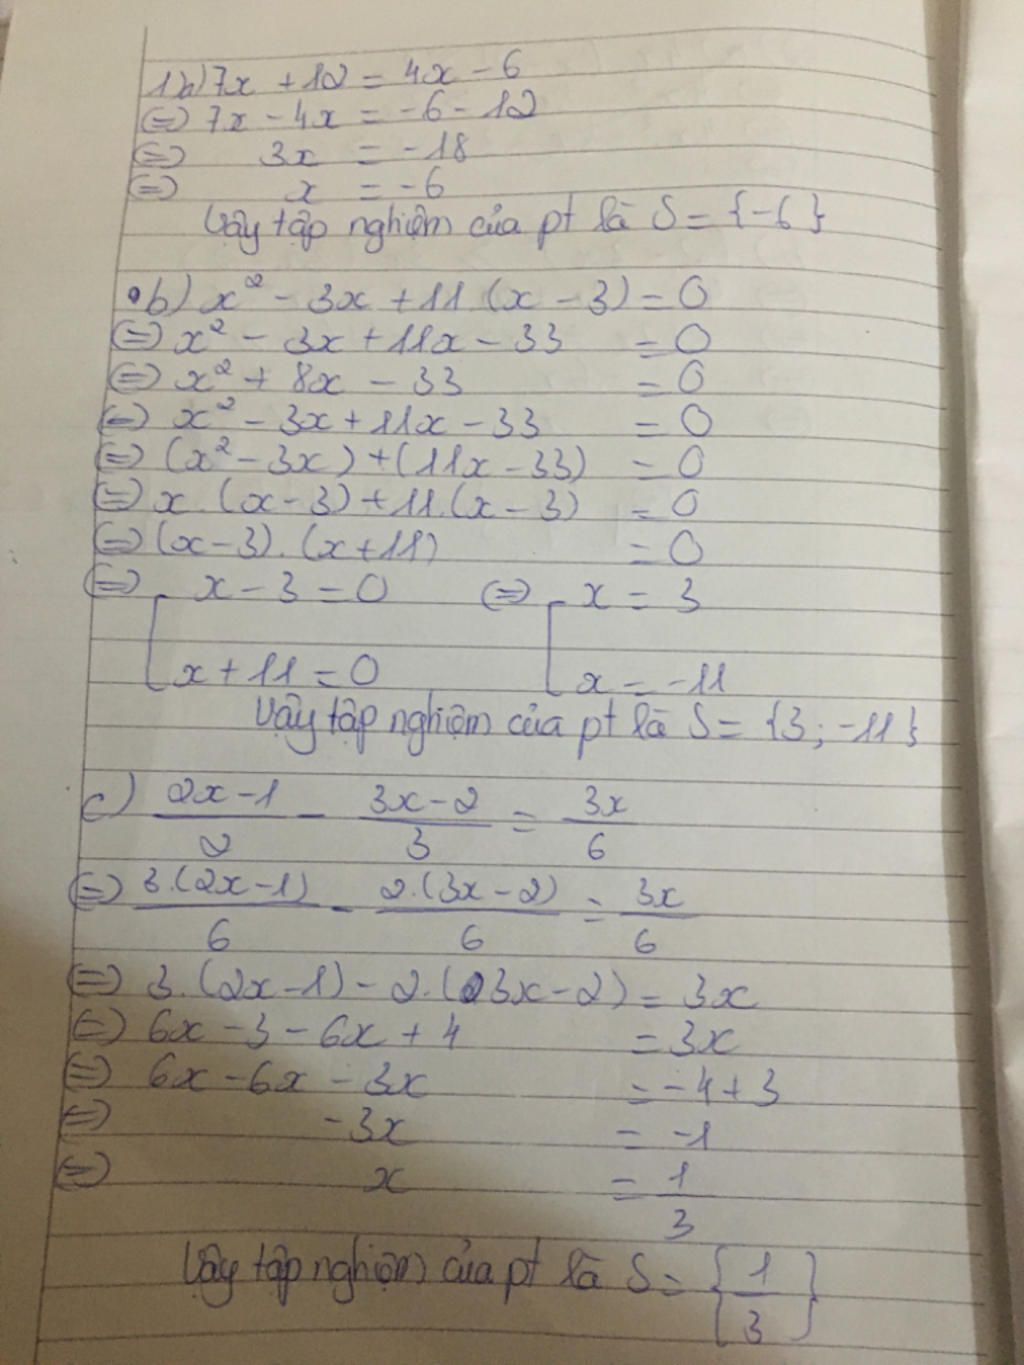 1) a) 7x + 12 = 4x - 6
(=) 7x - 4x = -6 - 12
(=) 3x = -18
(=) x = -6
Vậy tập nghiệm của pt là S = {-6}
b) x² - 3x + 11.(x - 3) = 0
(=) x² - 3x + 11x - 33 = 0
(=) x² + 8x - 33 = 0
(=) x² - 3x + 11x - 33 = 0
(=) (x² - 3x) + (11x - 33) = 0
(=) x.(x - 3) + 11.(x - 3) = 0
(=) (x - 3).(x + 11) = 0
(=) [ x - 3 = 0 (=) [ x = 3
x + 11 = 0 x = -11
Vậy tập nghiệm của pt là S = {3; -11}
c) (2x - 1)/2 - (3x - 2)/3 = 3x/6
(=) 3.(2x - 1)/6 - 2.(3x - 2)/6 = 3x/6
(=) 3.(2x - 1) - 2.(3x - 2) = 3x
(=) 6x - 3 - 6x + 4 = 3x
(=) 6x - 6x - 3x = -4 + 3
(=) -3x = -1
(=) x = 1/3
Vậy tập nghiệm của pt là S = {1/3}